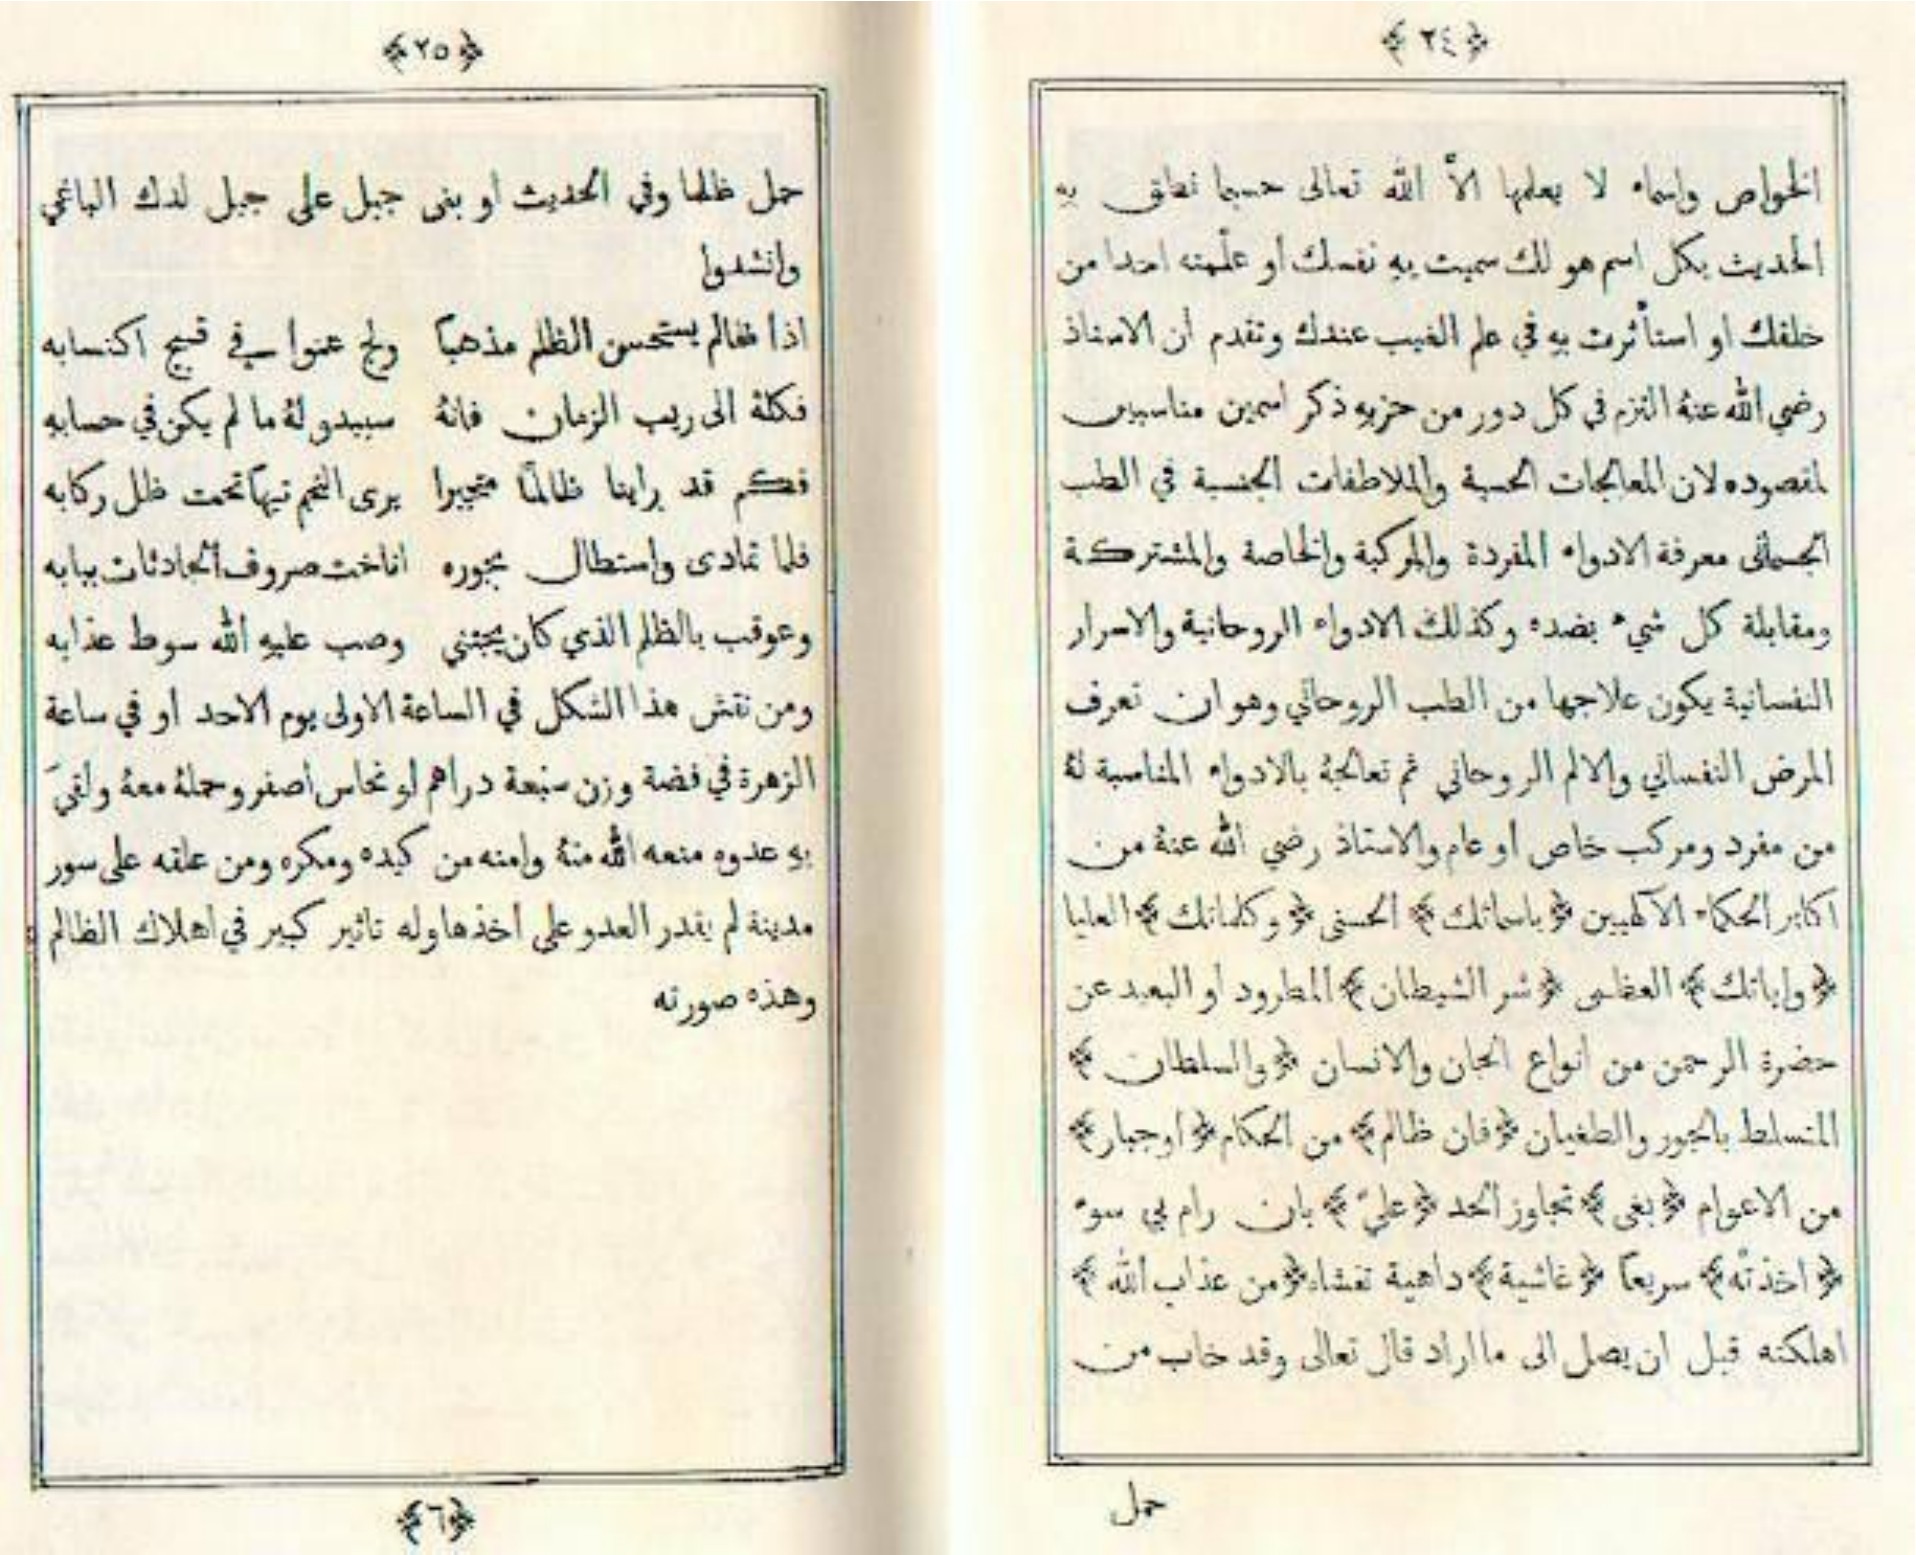 ﴿٢٤﴾
الخواص واسماء لا يعلمها الاّ الله تعالى حسبما نطق به
الحديث بكل اسم هو لك سميت به نفسك او علّمته احدا من
خلقك او استأثرت به في علم الغيب عندك وتقدم ان الاستاذ
رضي الله عنهُ التزم في كل دور من حزبه ذكر اسمين مناسبين
لمقصوده لان المعالجات الحسية والملاطفات الجنسية في الطب
الجسماني معرفة الادواء المفردة والمركبة والخاصة والمشتركة
ومقابلة كل شيء بضده وكذلك الادواء الروحانية والاسرار
النفسانية يكون علاجها من الطب الروحاني وهو ان تعرف
المرض النفساني والالم الروحاني ثم تعالجهُ بالادواء المناسبة لهُ
من مفرد ومركب خاص او عام والاستاذ رضي الله عنهُ من
اكابر الحكماء الآلهيين ﴿باسمائك﴾ الحسنى ﴿وكلماتك﴾ العليا
﴿واياتك﴾ العظمى ﴿شر الشيطان﴾ المطرود او البعيد عن
حضرة الرحمن من انواع الجان والانسان ﴿والسلطان﴾
المتسلط بالجور والطغيان ﴿فان ظالم﴾ من الحكام ﴿اوجبار﴾
من الاعوام ﴿بغى﴾ تجاوز الحد ﴿عليّ﴾ بان رام بي سوء
﴿اخذتْه﴾ سريعاً ﴿غاشية﴾ داهية تغشاه ﴿من عذاب الله﴾
اهلكته قبل ان يصل الى ما اراد قال تعالى وقد خاب من
حمل
﴿٢٥﴾
حمل ظلما وفي الحديث او بنى جبل على جبل لدك الباغي
وانشدوا
اذا ظالم يستحسن الظلم مذهباً ولج عتوا في قبيح اكتسابه
فكلهُ الى ريب الزمان فانهُ سيبدو لهُ ما لم يكن في حسابه
فكم قد راينا ظالمًا متجبرا يرى النجم تيهاً تحت ظل ركابه
فلما تمادى واستطال بجوره اناخت صروف الحادثات ببابه
وعوقب بالظلم الذي كان يجتني وصب عليه الله سوط عذابه
ومن نقش هذا الشكل في الساعة الاولى يوم الاحد او في ساعة
الزهرة في فضة وزن سبعة دراهم او نحاس اصفر وحملهُ معهُ ولقيَ
به عدوه منعه الله منهُ وامنه من كيده ومكره ومن علقه على سور
مدينة لم يقدر العدو على اخذها وله تاثير كبير في اهلاك الظالم
وهذه صورته
﴿٦﴾